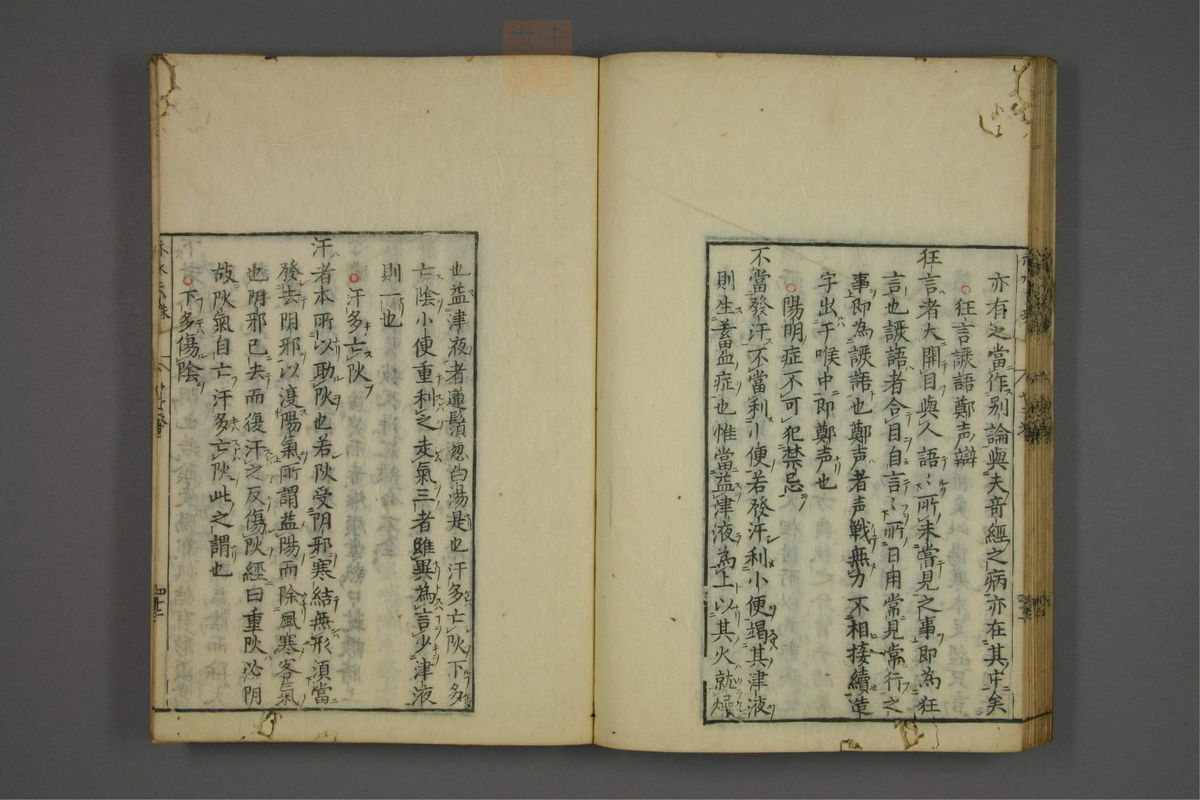 亦有之當作别論與夫竒經之病亦在其中矣
狂言譫語鄭声辯
狂言者大開目與人語〻所未嘗見之事即為狂
言也譫語者合目自言〻所日用常見常行之
事即為譫語也鄭声者声戦無力不相接續造
字出于喉中即鄭声也
陽明症不可犯禁忌
不當發汗不當利小便若發汗利小便竭其津液
則生蓄血症也惟當益津液為上以其火就燥
也益津液者連鬚葱白湯是也汗多亡阦下多
亡陰小便重利之走氣三者雖異為言少津液
則一也
汗多亡阦
汗者本所以助阦也若阦受阴邪寒結無形須當
發去阴邪以渡陽氣所謂益陽而除風寒客氣
也阴邪已去而復汗之反傷阦經曰重阦必阴
故阦氣自亡汗多亡阦此之謂也
下多傷陰